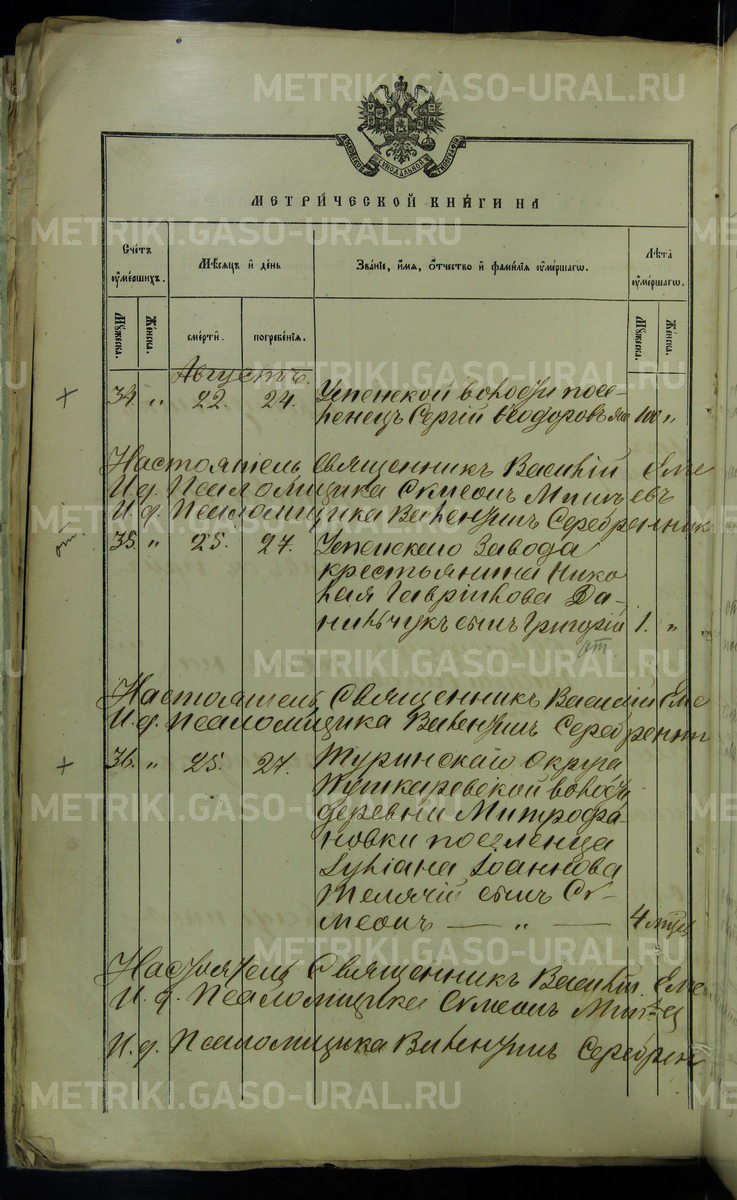 METRIKI.GASO-URAL.RU
МЕТРИ́ЧЕСКОЙ КНИ́ГИ НА
Сче́тъ ᲂу҆ме́ршихъ.
Мѣ́сяцъ и҆ де́нь
Зва́нїе, и҆́мя, ѻ҆́тчество и҆ фами́лїя ᲂу҆ме́ршагѡ.
Лѣ́та ᲂу҆ме́ршагѡ.
Му́жеска. Же́нска. сме́рти. погребе́нїя. Му́жеска. Же́нска.
Августъ.
34. „ 22. 24. Успенской волости посе-
ленецъ Сергій Ѳеодоровъ 100 „
Настоятель Священникъ Василій Еме
И. д. Псаломщика Симеонъ
И. д. Псаломщика Викентій Серебренник
35. „ 25. 27. Успенскаго Завода
крестьянина Нико
лая Гаврілова Да-
нильчукъ сынъ Григорій 1. „
от.
Настоятель, Священникъ Василій Еме
И. д. Псаломщика Викентій Серебренни
36. „ 25. 27. Туринскаго Округа
Кушкаревской волости
деревни Митрофа-
новки поселенца
Іоаннова
сынъ Си-
меонъ — „ — 4 мѣс
Настоятель Священникъ Василій Еме
И. д. Псаломщика Симеонъ
И. д. Псаломщика Викентій Серебрен